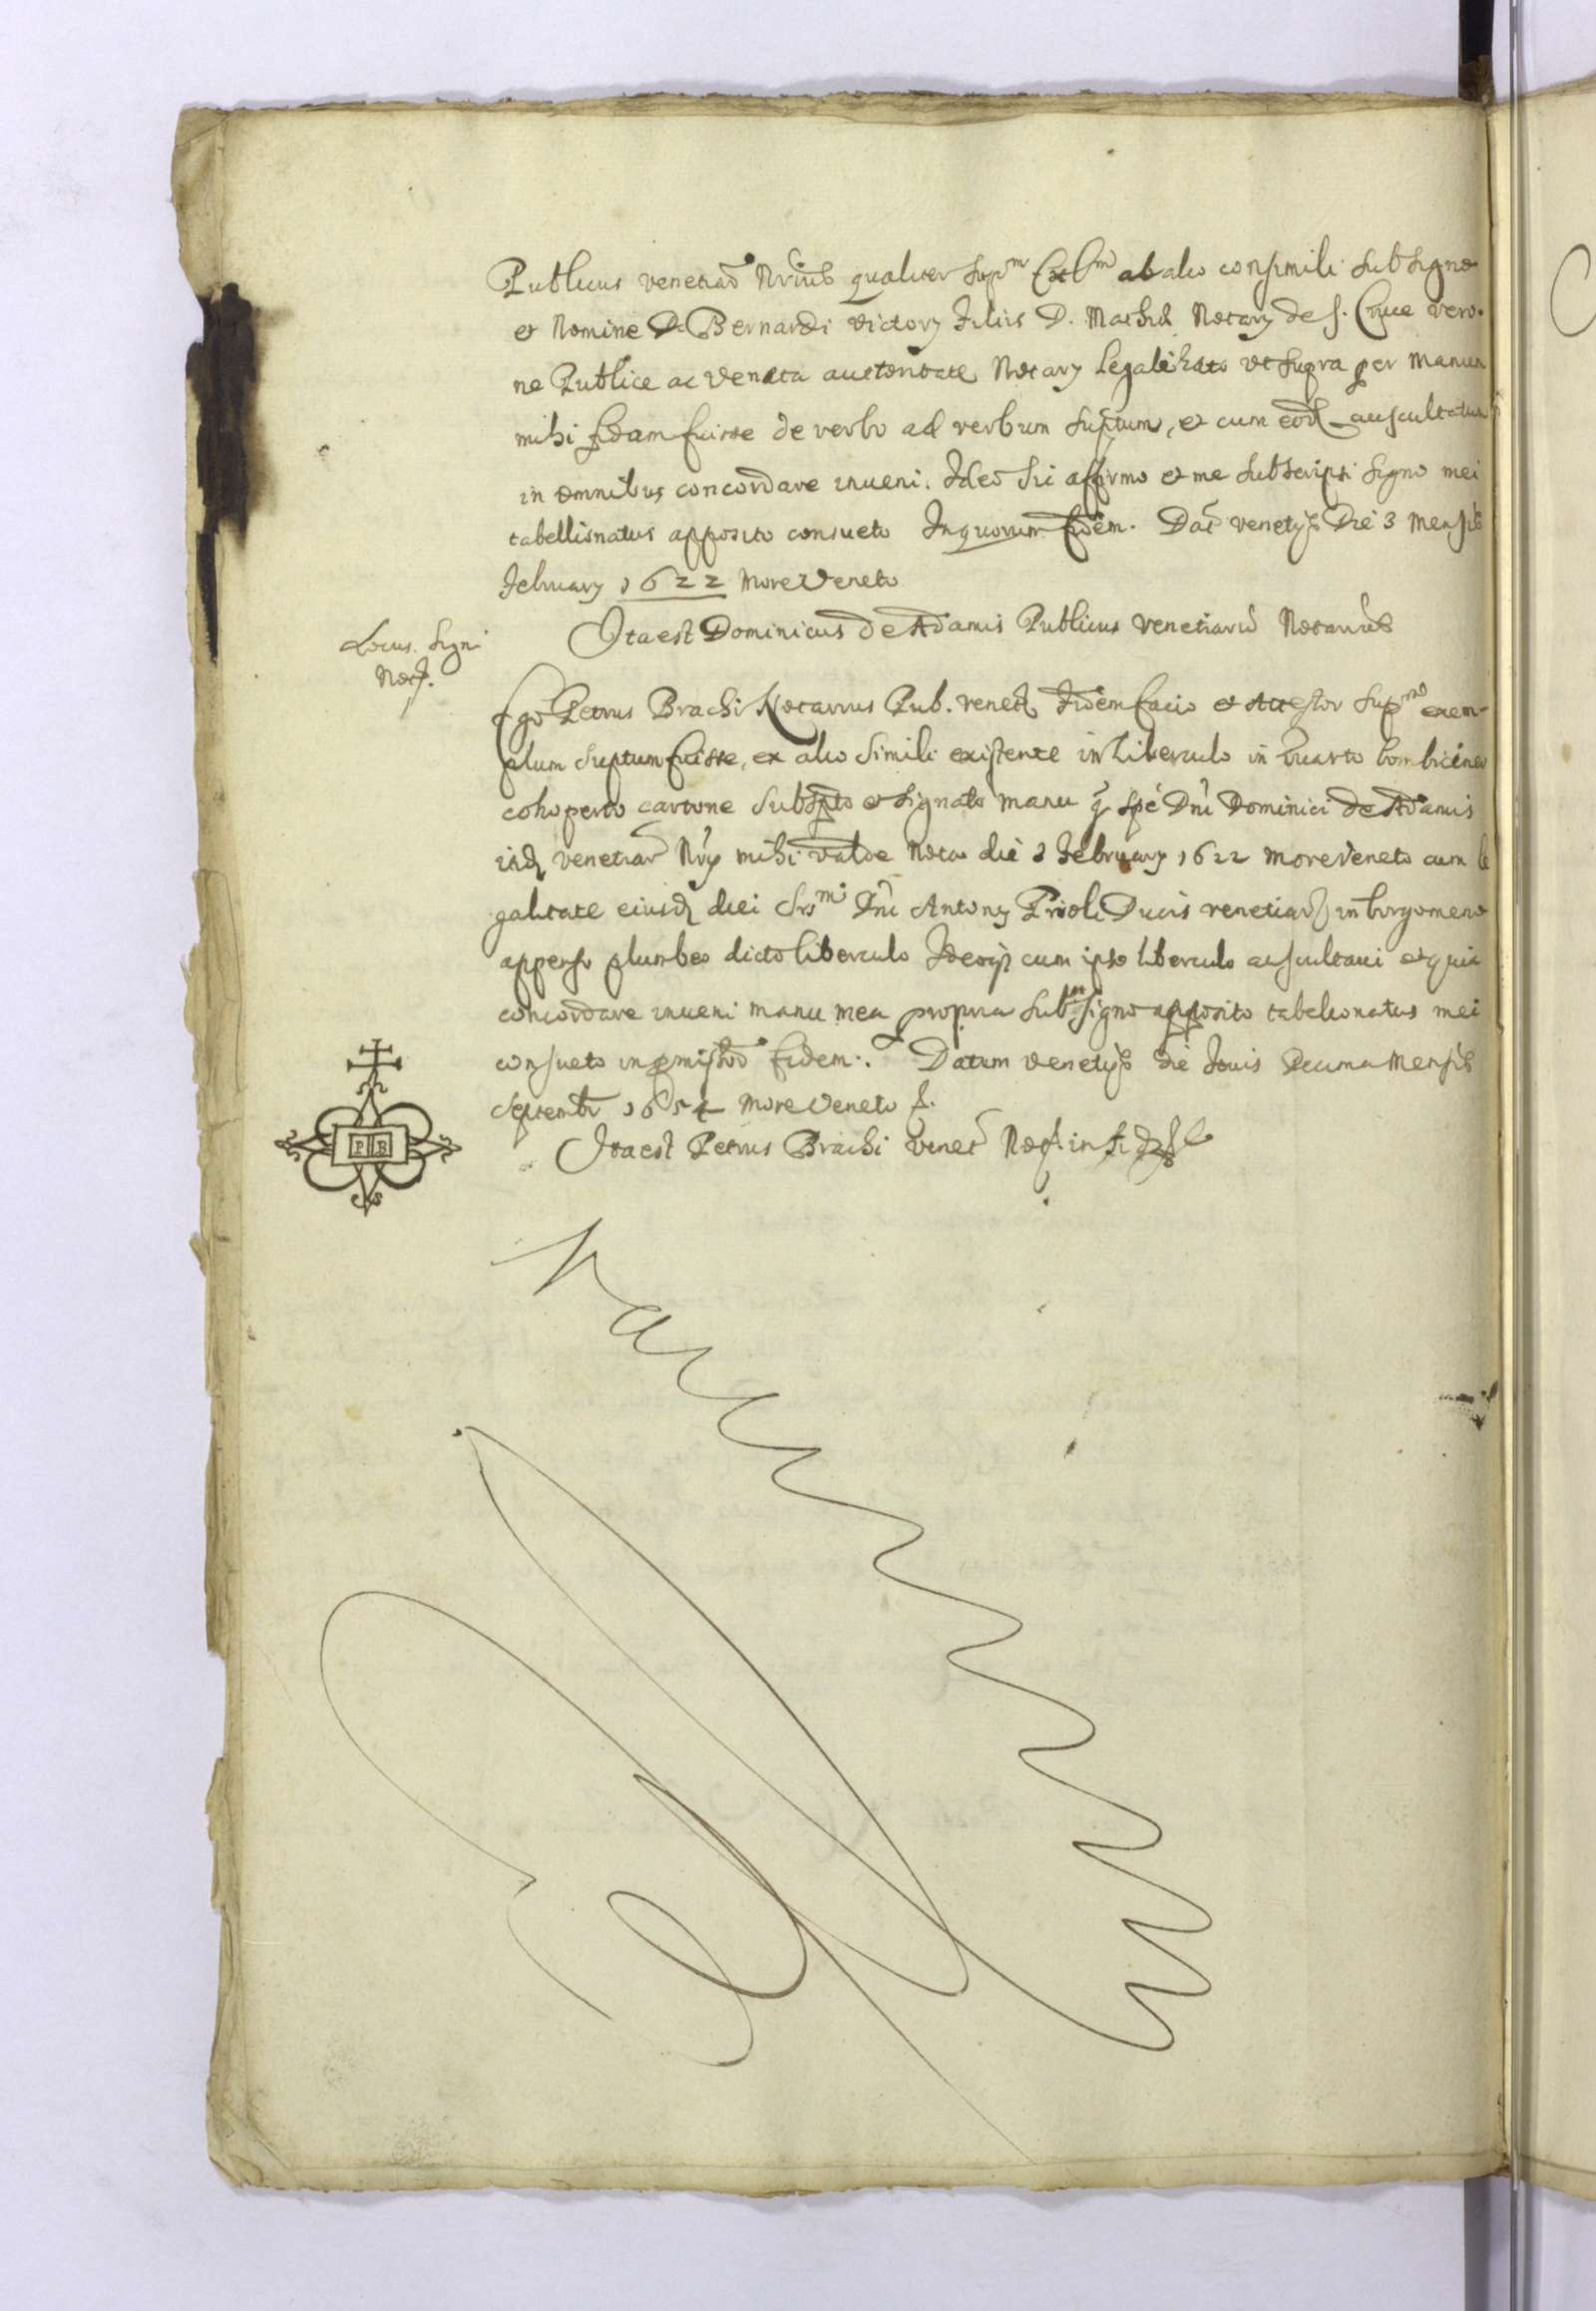 Publicus venetiar̃ Nrius qualiter supm ab alio consimili sub signo
et Nomine D. Bernardi victorij filius D. Mathei Notarij de S. Cruce vero-
ne Publice ac Veneta auctoritate Notarij Legalizato vt supra per manun
mihi fidam fuisse de verbo ad verbum suptum, et cum eod auscultatum
in omnibus concordare inueni. Ideo sic affirmo et me subscripsi signo mei
tabellionatus apposito consueto In quorum fidem. Dat venetijs Die 3 mensis
februarij 1622 more Veneto
Locus Signi
Not.
Ita est Dominicus de Adamis Publicus venetiarũ Notarius
Ego Petrus Brachi Notarius Pub. venet fidem facio et Attestor supm exem-
plum suptum fuisse, ex alio simili existente in Liberculo in quarto bombicineo
cohoperto cartone subspto et signato manu q spe Dni Dominici de Adamis
venetiar Nrij mihi valde noto die 3 februarij 1622 more Veneto cum le
galitate eiusd diei Srsmi Dni Antonij Prioli Ducis venetiar in
appenso plumbeo dicto liberculo cum ipso liberculo auscultaui et quia
concordare inueni manu mea propria sub signo apposito tabelionatus mei
consueto in pmissor fidem. Datum venetijs die Jouis Decima mensis
Septemb 1654 more Veneto
P B
Ita est Petrus Brachi Venet Not in